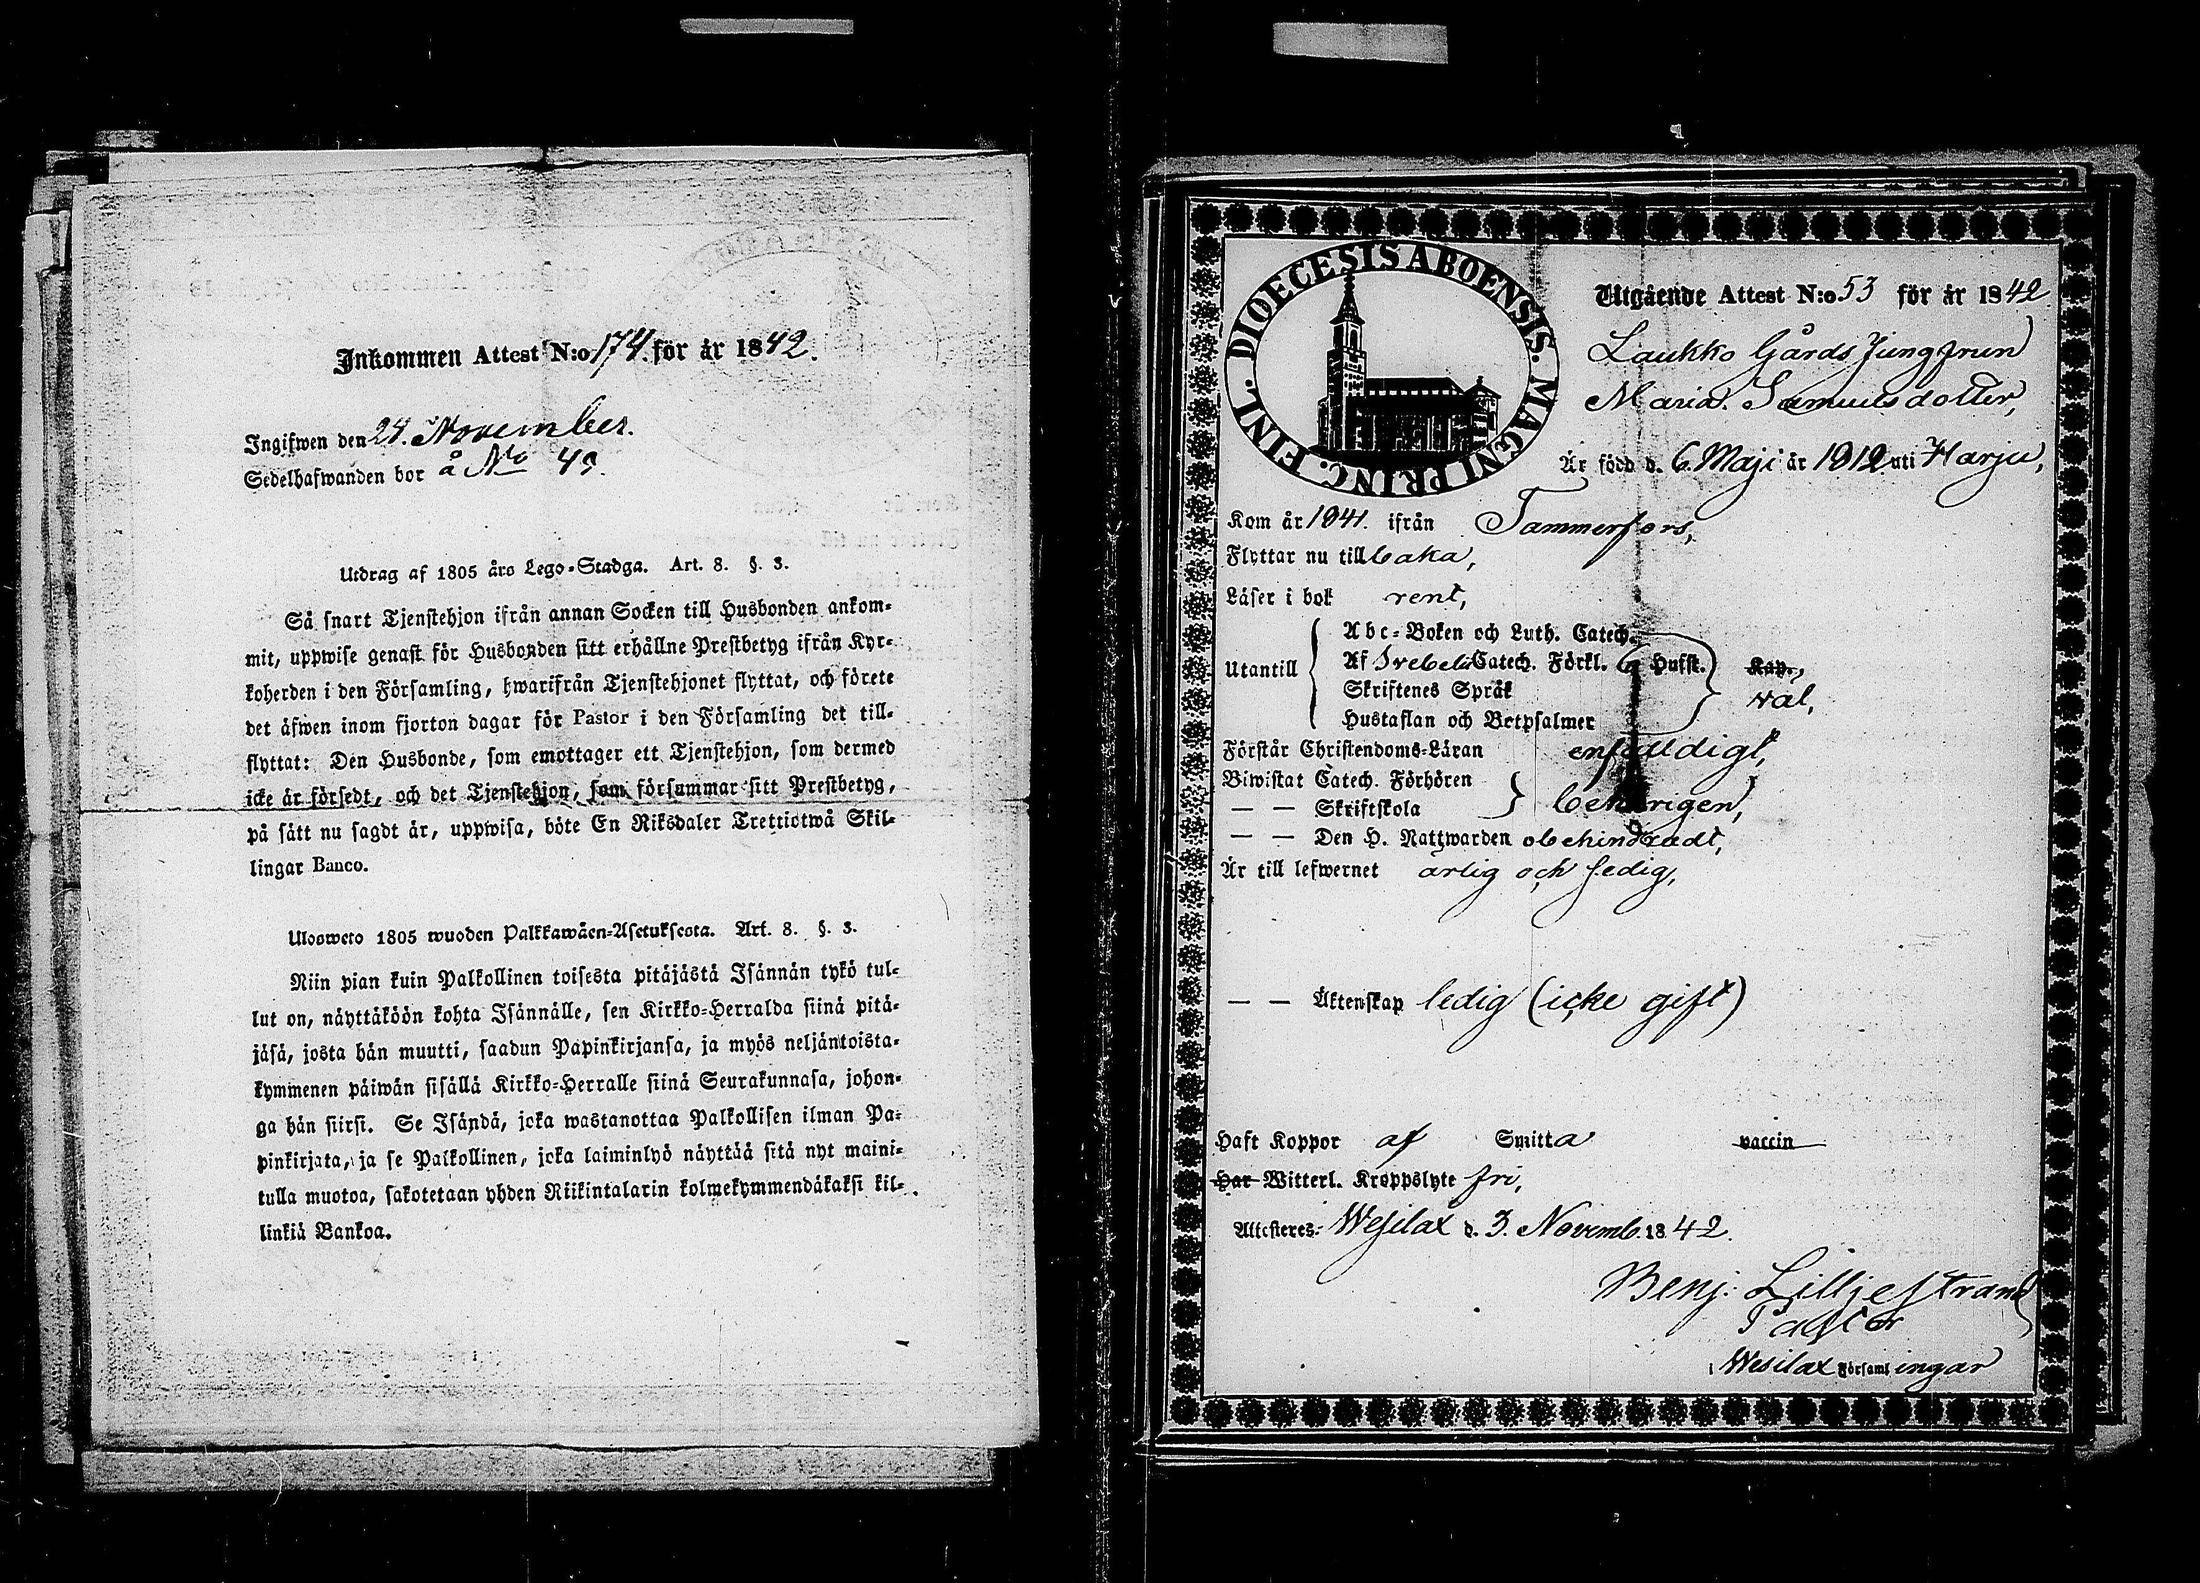 Inkommen Attest N:o 174. för år 1842.
Ingifwen den 24. November.
Sedelhafwanden bor å No 49.
Utdrag af 1805 års Lego-Stadga. Art. 8. §. 3.
Så snart Tjenstehjon ifrån annan Socken till Husbonden ankom-
mit, uppwise genast för Husbonden sitt erhållne Prestbetyg ifrån Kyr-
koherden i den Församling, hwarifrån Tjenstehjonet flyttat, och förete
det äfwen inom fjorton dagar för Pastor i den Församling det till-
flyttat: Den Husbonde, som emottager ett Tjenstehjon, som dermed
icke är försedt, och det Tjenstehjon, som försummar sitt Prestbetyg,
på sätt nu sagdt är, uppwisa, böte En Riksdaler Trettiotwå Skil-
lingar Banco.
Ulosweto 1805 wuoden Palkkawäen-Asetuksesta. Art. 8. §. 3.
Niin pian kuin Palkollinen toisesta pitäjästä Isännän tykö tul-
lut on, näyttäköön kohta Isännälle, sen Kirkko-Herralda siinä pitä-
jäsä, josta hän muutti, saadun Papinkirjansa, ja myös neljäntoista-
kymmenen päiwän sisällä Kirkko-Herralle siinä Seurakunnasa, johon-
ga hän siirsi. Se Isändä, joka wastanottaa Palkollisen ilman Pa-
pinkirjata, ja se Palkollinen, joka laiminlyö näyttää sitä nyt maini-
tulla muotoa, sakotetaan yhden Riikintalarin kolmekymmendäkaksi kil-
linkiä Bankoa.
DIOECESIS ABOENSIS. MAGNI PRINC. FINL.
Utgående Attest N:o 53 för år 1842
Laukko Gårds Jungfrun
Maria Samuelsdotter,
Är född d. 6 Maji år 1812 uti Harju,
Kom år 1841. ifrån Tammerfors,
Flyttar nu tillbaka,
Läser i bok rent,
Abc-Boken och Luth. Catech.
Utantill Af Svebelii Catech. Förkl. Hufst. Kap.,
Skriftenes Språk wäl,
Hustaflan och Botpsalmer
Förstår Christendoms-Läran enfaldigt,
Biwistat Catech. Förhören
— — Skriftskola behörigen,
— — Den H. Nattwarden obehindradt,
Är till lefwernet ärlig och sedig,
— — Äktenskap ledig (icke gift)
Haft Koppor af Smitta vaccin
Har Witterl. Kroppslyte fri,
Attesteres: Wesilax d. 3. Novemb. 1842.
Benj: Lilljestrand
Pastor
i Wesilax Församlingar